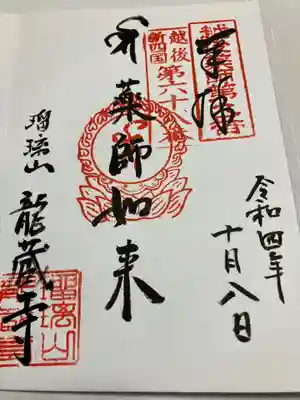 奉拝
越後
新四国
第六十八番
薬師如来
瑠璃山
龍蔵寺
令和四年
十月八日
瑠璃山